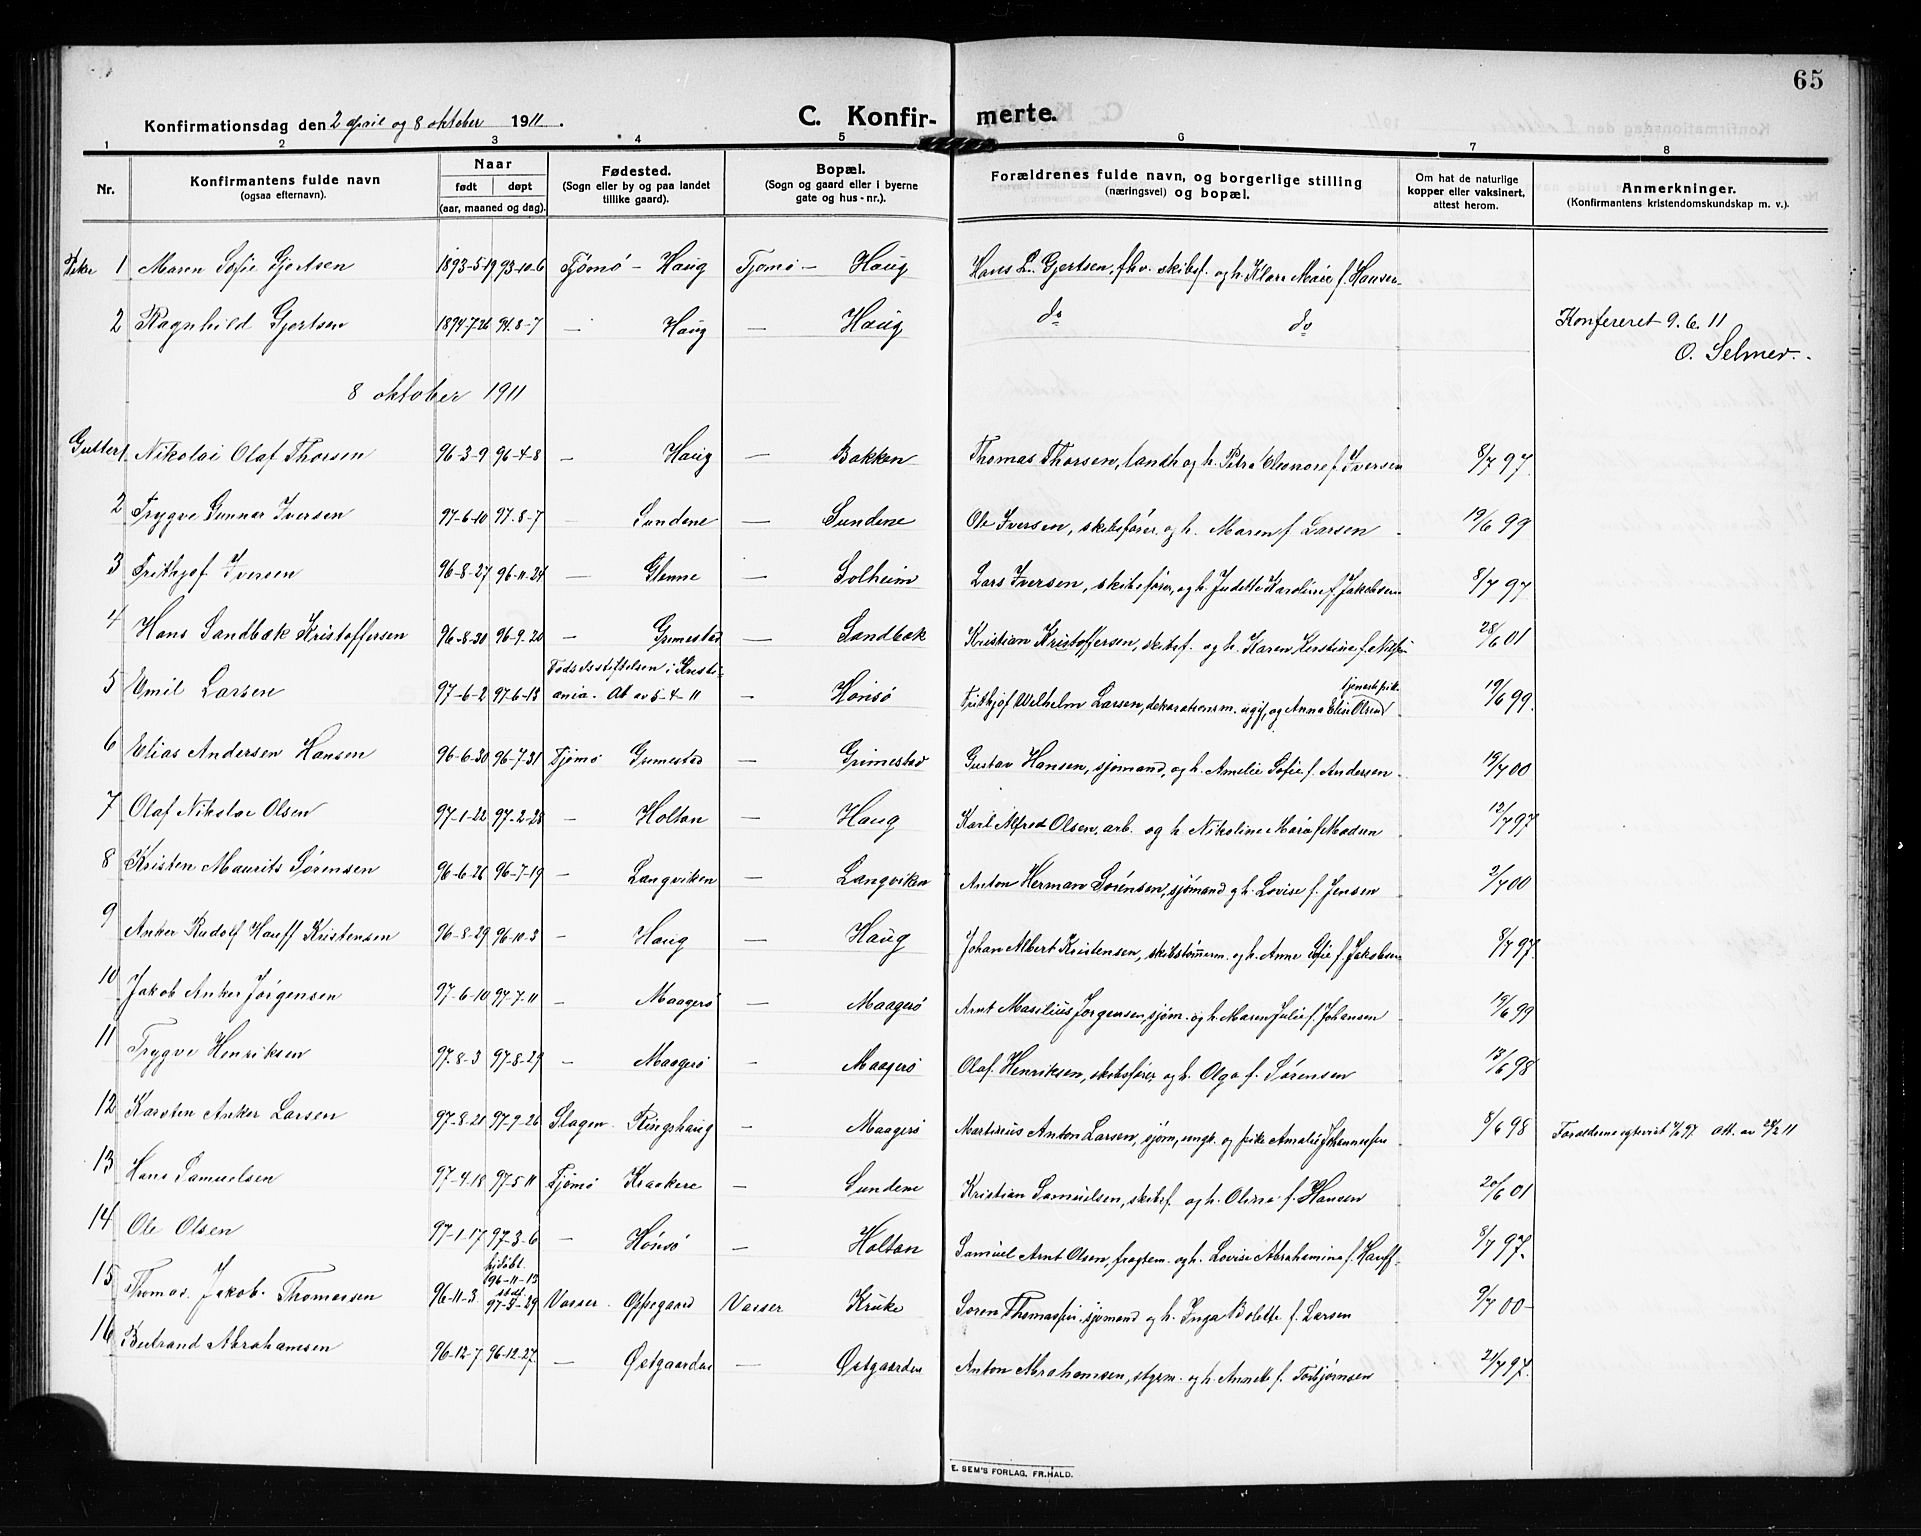 65
Konfirmationsdag den 2 april og 8 oktober 1911.
C. Konfir- merte.
1 2 3 4 5 6 7 8
Nr.
Konfirmantens fulde navn
(ogsaa efternavn).
Naar
født døpt
(aar, maaned og dag).
Fødested.
(Sogn eller by og paa landet
tillike gaard).
Bopæl.
(Sogn og gaard eller i byerne
gate og hus-nr.).
Forældrenes fulde navn, og borgerlige stilling
(næringsvei) og bopæl.
Om hat de naturlige
kopper eller vaksinert,
attest herom.
Anmerkninger.
(Konfirmantens kristendomskundskap m. v.).
1 Maren Sofie Gjertsen 1893-5-19 93-10-6 Tjømø - Haug Tjømø - Haug Hans L. Gjertsen, fhv. skibsf. og h. Klara Marie f. Hansen
2 Ragnhild Gjertsen 1894-7-26 94-8-7 - Haug - Haug do do Konfereret 9.6.11
O. Selmer.
8 oktober 1911
Gutter 1 Nikolai Olaf Thorsen 96-3-9 96-4-8 - Haug - Bakken Thomas Thorsen, landh og h. Petra Eleonore f. Iversen 8/7 97.
2 Trygve Gunnar Iversen 97-6-10 97-8-7 - Sundene - Sundene Ole Iversen, skibsfører og h. Maren f. Larsen 19/6 99
3 Frithjof Iversen 96-8-27 96-11-24 - Glenne - Solheim Lars Iversen, skibsfører, og h. Judette Karoline f. Jakobsen 8/7 97
4 Hans Sandbæk Kristoffersen 96-8-30 96-9-20 - Grimestad - Sandbæk Kristian Kristoffersen, skibsf. og h. Karen Kerstine f. 28/6 01
5 Emil Larsen 97-6-2 97-6-13 Fødselsstiftelsen i Kristi-
ania. At av 5-4-11 - Hønsø Frithjof Wilhelm Larsen, dekorationsm. ugif, og tjenestepik. Anna Elise Olsen 19/6 99.
6 Elias Andersen Hansen 96-6-30 96-7-31 Tjømø Grimestad - Grimestad Gustav Hansen, sjømand, og h. Amelie Sofie f. Andersen 19/7 00
7 Olaf Nikolai Olsen 97-1-22 97-2-28 - Holtan - Haug Karl Alfred Olsen, arb. og h. Nikoline f. Madsen 13/7 97
8 Kristen Maurits Sørensen 96-6-26 96-7-19 - Langviken - Langviken Anton Herman Sørensen, sjømand og h. Lovise f. Jensen 2/7 00
9 Anker Rudolf Hauff Kristensen 96-8-29 96-10-3 - Haug - Haug Johan Albert Kristensen, skibstømmerm. og h. Anne Sofie f. Jakobsen 8/7 97.
10 Jakob Anker Jørgensen 97-6-10 97-7-11 - Maagerø - Maagerø Arnt Masilius Jørgensen, sjøm. og h. Maren Julie f. Johansen 19/6 99
11 Trygve Henriksen 97-8-3 97-8-29 - Maagerø - Maagerø Olaf Henriksen, skibsfører, og h. Olga f. Sørensen 13/6 98
12 Karsten Anker Larsen 97-8-21 97-9-26 Slagen Ringshaug - Maagerø Martinius Anton Larsen, sjøm, ungk. og pike Amalie Johannesen 8/6 98 Foræld. egteviet 97. Att. av 2 11
13 Hans Samuelsen 97-4-18 97-5-11 Tjømø Kraakere - Sundene Kristian Samuelsen, skibsf. og h. Olina f. Hansen 20/6 01
14 Ole Olsen 97-1-17 97-3-6 - Hønsø - Holtan Samuel Arnt Olsen, fragtem. og h. Lovise Abrahamine f. Hauff 8/7 97.
15 Thomas Jakob Thomassen 96-11-3 hjdøbt 96-11-13 stadf 97-3-29 Vasser Oppegaard Vasser Kruke Søren Thomassen, sjømand og h. Inga Bolette f. Larsen 9/7 00
16 Bertrand Abrahamsen 96-12-7 96-12-27 - Østgaarden - Østgaarden Anton Abrahamsen, styrm. og h. Annette f. Torbjørnsen 21/7 97.
E. SEM'S FORLAG, FR.HALD.